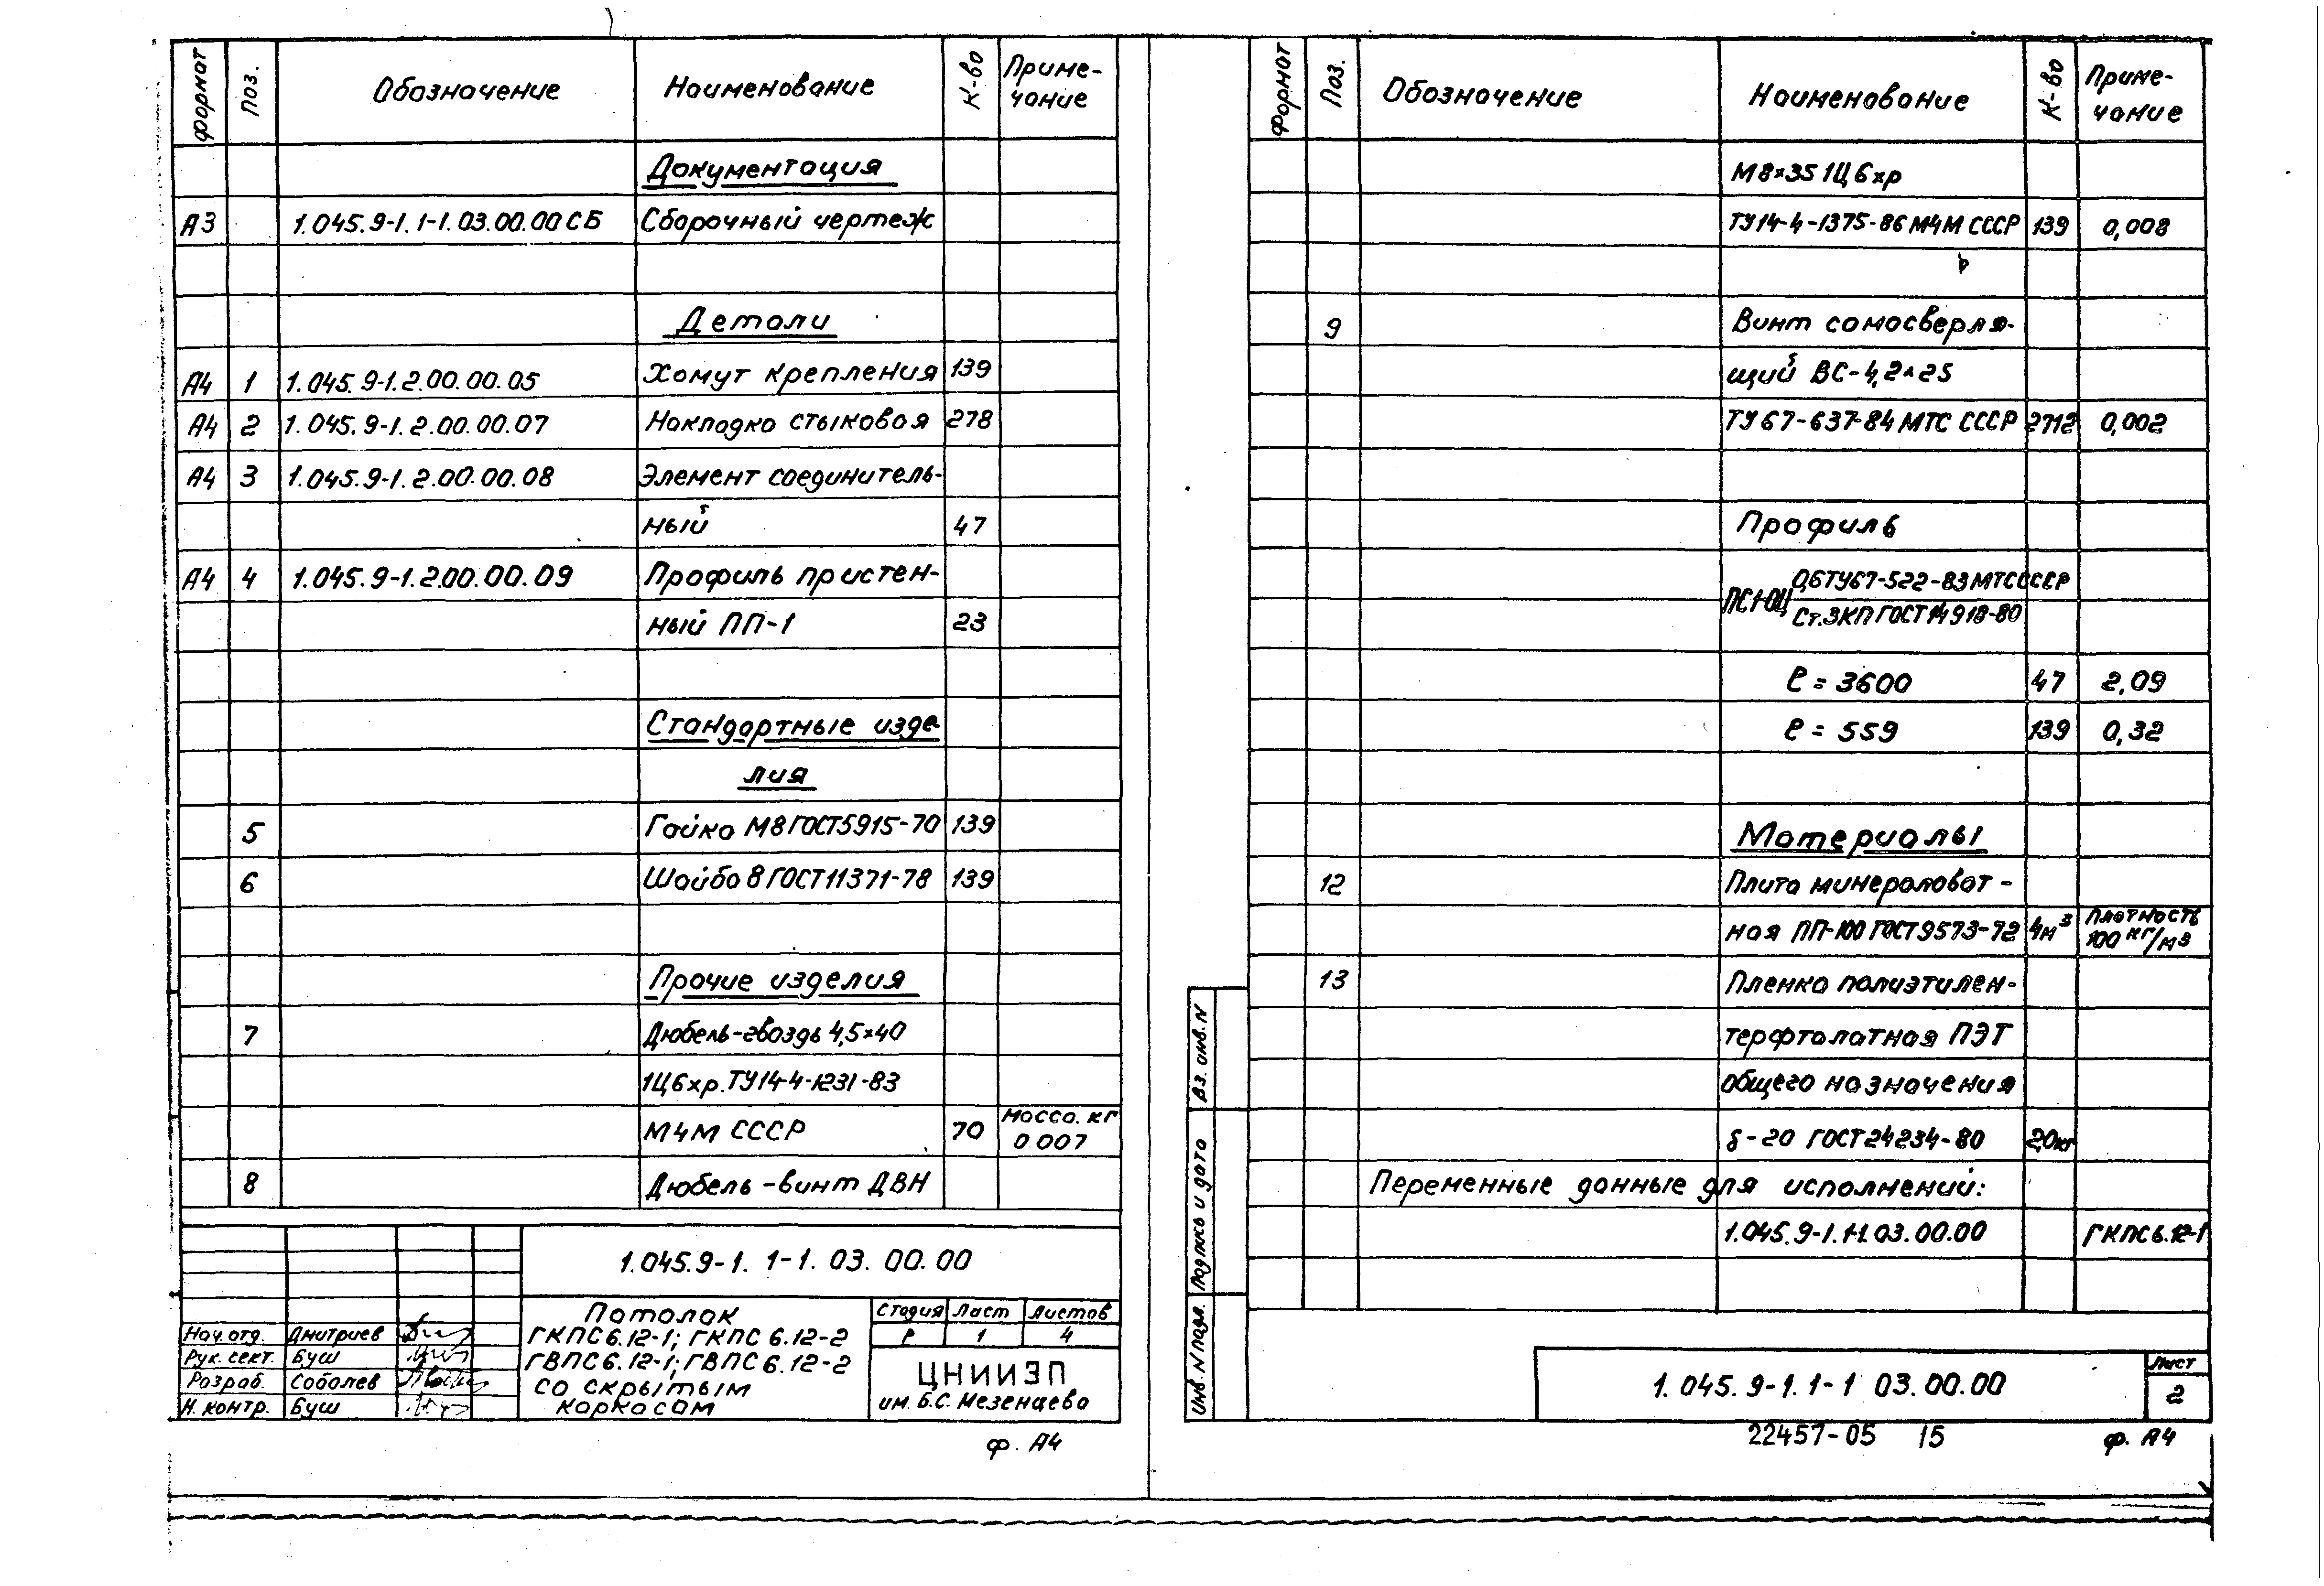 формат Поз. Обозначение Наименование К-во Приме-
чание
Документация
А3 1.045.9-1.1-1.03.00.00 СБ Сборочный чертеж
Детали
А4 1 1.045.9-1.2.00.00.05 Хомут крепления 139
А4 2 1.045.9-1.2.00.00.07 Накладка стыковая 278
А4 3 1.045.9-1.2.00.00.08 Элемент соединитель-
ный 47
А4 4 1.045.9-1.2.00.00.09 Профиль пристен-
ный ПП-1 23
Стандартные изде
лия
5 Гайка М8 ГОСТ5915-70 139
6 Шайба 8 ГОСТ11371-78 139
Прочие изделия
7 Дюбель-гвоздь 4,5×40
1Ц6хр. ТУ14-4-1231-83
МЧМ СССР 70 масса. кг
0.007
8 Дюбель-винт ДВН
1.045.9-1. 1-1. 03. 00. 00
Потолок
ГКПС6.12-1; ГКПС 6.12-2
ГВПС6.12-1; ГВПС6.12-2
со скрытым
каркасом
Стадия Лист Листов
Р 1 4
Нач.отд. Дмитриев
Рук. сект. Буш
Разраб. Соболев
Н. контр. Буш
ЦНИИЭП
им. Б.С. Мезенцева
ф. А4
Формат Поз. Обозначение Наименование К-во Приме-
чание
М8×35 1Ц6хр
ТУ14-4-1375-86 МЧМ СССР 139 0,008
9 Винт самосверля-
щий ВС-4,2×25
ТУ67-637-84 МТС СССР 2712 0,002
Профиль
0,6ТУ67-522-83МТСССССР
Ст.3КП ГОСТ14918-80
ℓ = 3600 47 2,09
ℓ = 559 139 0,32
Материалы
12 Плита минераловат-
ная ПП-100 ГОСТ9573-72 4м³ Плотность
100 кг/м3
13 Пленка полиэтилен-
терфталатная ПЭТ
общего назначения
δ-20 ГОСТ24234-80 2,0кг
Переменные данные для исполнений:
1.045.9-1.1-1.03.00.00 ГКПС6.12-1
Вз. инв. N
Подпись и дата
Инв. N подл.
1.045.9-1.1-1 03.00.00
Лист
2
22457-05 15
ф. А4